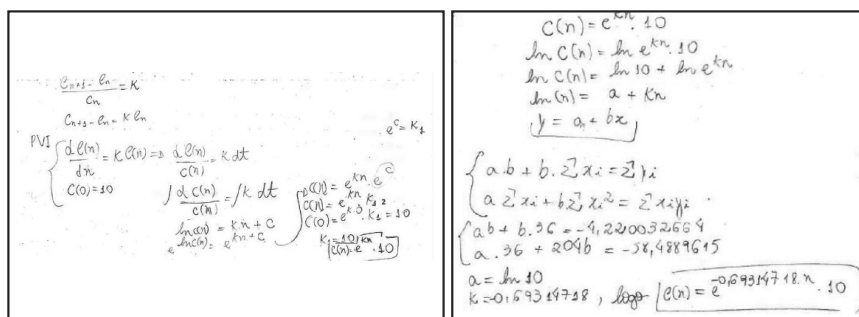 C_{n+1} - C_n / C_n = K
C_{n+1} - C_n = K C_n
PVI { dC(n)/dn = K C(n) => dC(n)/C(n) = K dt
C(0) = 10
∫ dC(n)/C(n) = ∫ K dt
ln C(n) = K.n + C
e^{ln C(n)} = e^{Kn + C}
e^C = K_1
C(n) = e^{Kn} . e^C
C(n) = e^{Kn} . K_1
C(0) = e^{K.0} . K_1 = 10
K_1 = 10
C(n) = e^{Kn} . 10
C(n) = e^{Kn} . 10
ln C(n) = ln e^{Kn} . 10
ln C(n) = ln 10 + ln e^{Kn}
ln(n) = a + Kn
y = a + bx
{ a.b + b.Σxi = Σyi
a Σxi + b Σxi² = Σxiyi
{ ab + b.36 = -4,220032664
a.36 + 204b = -58,4889615
a = ln 10
K = -0,69314718, logo C(n) = e^{-0,69314718.n} . 10